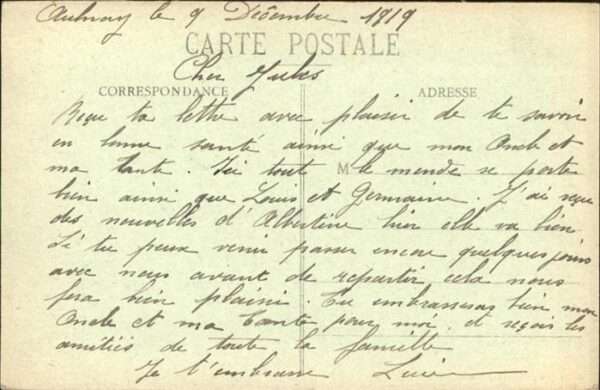 Aulnay le 9 Décembre 1919
CARTE POSTALE
Cher Jules
CORRESPONDANCE
ADRESSE
Reçue ta lettre avec plaisir de te savoir
en bonne santé ainsi que mon Oncle et
ma tante. Ici tout M le monde se porte
bien ainsi que Louis et Germaine. J'ai reçue
des nouvelles d'Albertine hier elle va bien
Si tu peux venir passer encore quelques jours
avec nous avant de repartir cela nous
fera bien plaisir. Tu embrasseras bien mon
Oncle et ma tante pour moi, et reçois les
amitiés de toute la famille
Je t'embrasse Lucie